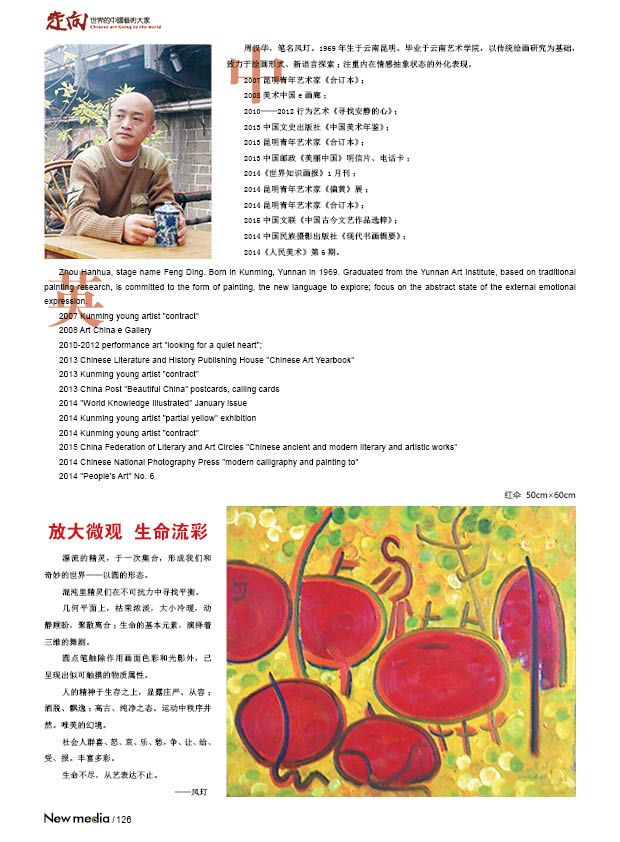 走向世界的中國藝術大家
Chinese art Going to the world
中
周汉华，笔名风玎。1969 年生于云南昆明。毕业于云南艺术学院，以传统绘画研究为基础，
致力于绘画形式、新语言探索；注重内在情感抽象状态的外化表现。
2007 昆明青年艺术家《合订本》；
2008 美术中国 e 画廊；
2010——2012 行为艺术《寻找安静的心》；
2013 中国文史出版社《中国美术年鉴》；
2013 昆明青年艺术家《合订本》；
2013 中国邮政《美丽中国》明信片、电话卡；
2014《世界知识画报》1 月刊；
2014 昆明青年艺术家《偏黄》展；
2014 昆明青年艺术家《合订本》；
2015 中国文联《中国古今文艺作品选粹》；
2014 中国民族摄影出版社《现代书画辑要》；
2014《人民美术》第 6 期。
英
Zhou Hanhua, stage name Feng Ding. Born in Kunming, Yunnan in 1969. Graduated from the Yunnan Art Institute, based on traditional
painting research, is committed to the form of painting, the new language to explore; focus on the abstract state of the external emotional
expression.
2007 Kunming young artist "contract"
2008 Art China e Gallery
2010-2012 performance art "looking for a quiet heart";
2013 Chinese Literature and History Publishing House "Chinese Art Yearbook"
2013 Kunming young artist "contract"
2013 China Post "Beautiful China" postcards, calling cards
2014 "World Knowledge Illustrated" January Issue
2014 Kunming young artist "partial yellow" exhibition
2014 Kunming young artist "contract"
2015 China Federation of Literary and Art Circles "Chinese ancient and modern literary and artistic works"
2014 Chinese National Photography Press "modern calligraphy and painting to"
2014 "People's Art" No. 6
红伞 50cm×60cm
放大微观 生命流彩
漂流的精灵，于一次集合，形成我们和
奇妙的世界——以圆的形态。
混沌里精灵们在不可抗力中寻找平衡。
几何平面上，枯荣浓淡，大小冷暖，动
静顾盼，聚散离合；生命的基本元素，演绎着
三维的舞剧。
圆点笔触除作用画面色彩和光影外，已
呈现出似可触摸的物质属性。
人的精神于生存之上，显露庄严、从容；
洒脱、飘逸；高古、纯净之态。运动中秩序井
然。唯美的幻境。
社会人群喜、怒、哀、乐、愁，争、让、给、
受、报。丰富多彩。
生命不尽，从艺表达不止。
——风玎
New media / 126